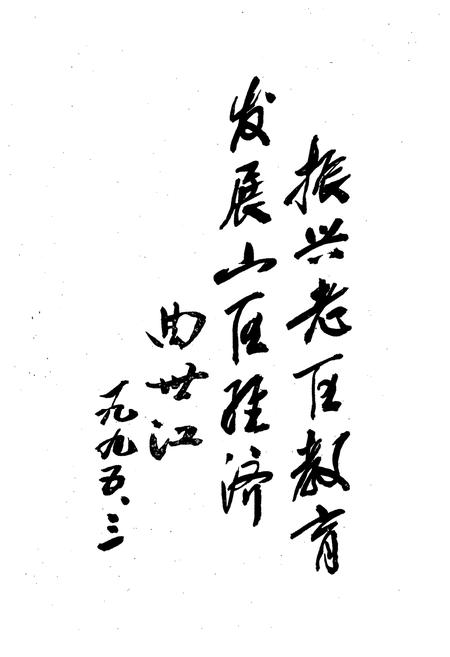 振兴老区教育
发展山区经济
曲世江
一九九五、三